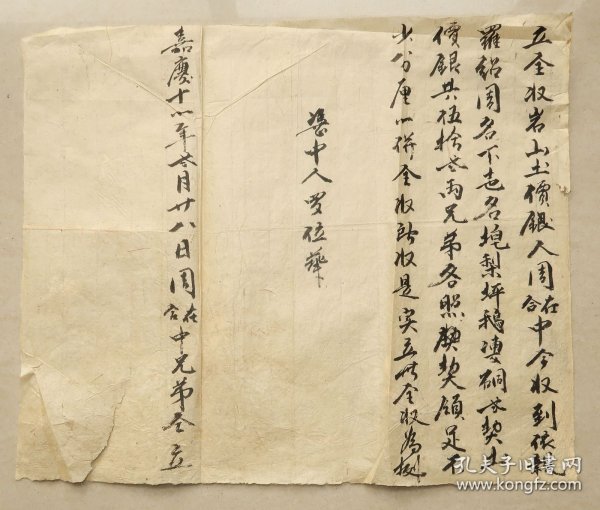 立全收岩山土價銀人周在合中今收到依親
羅紹周名下土名堍梨坪鵝凄硐契
價銀共伍拾叁兩兄弟各照契領足不
少分厘以併全收所收是实立此全收為據
憑中人罗位華
嘉慶十八年叁月廿八日周在合中兄弟全立
孔夫子旧书网
www.kongfz.com